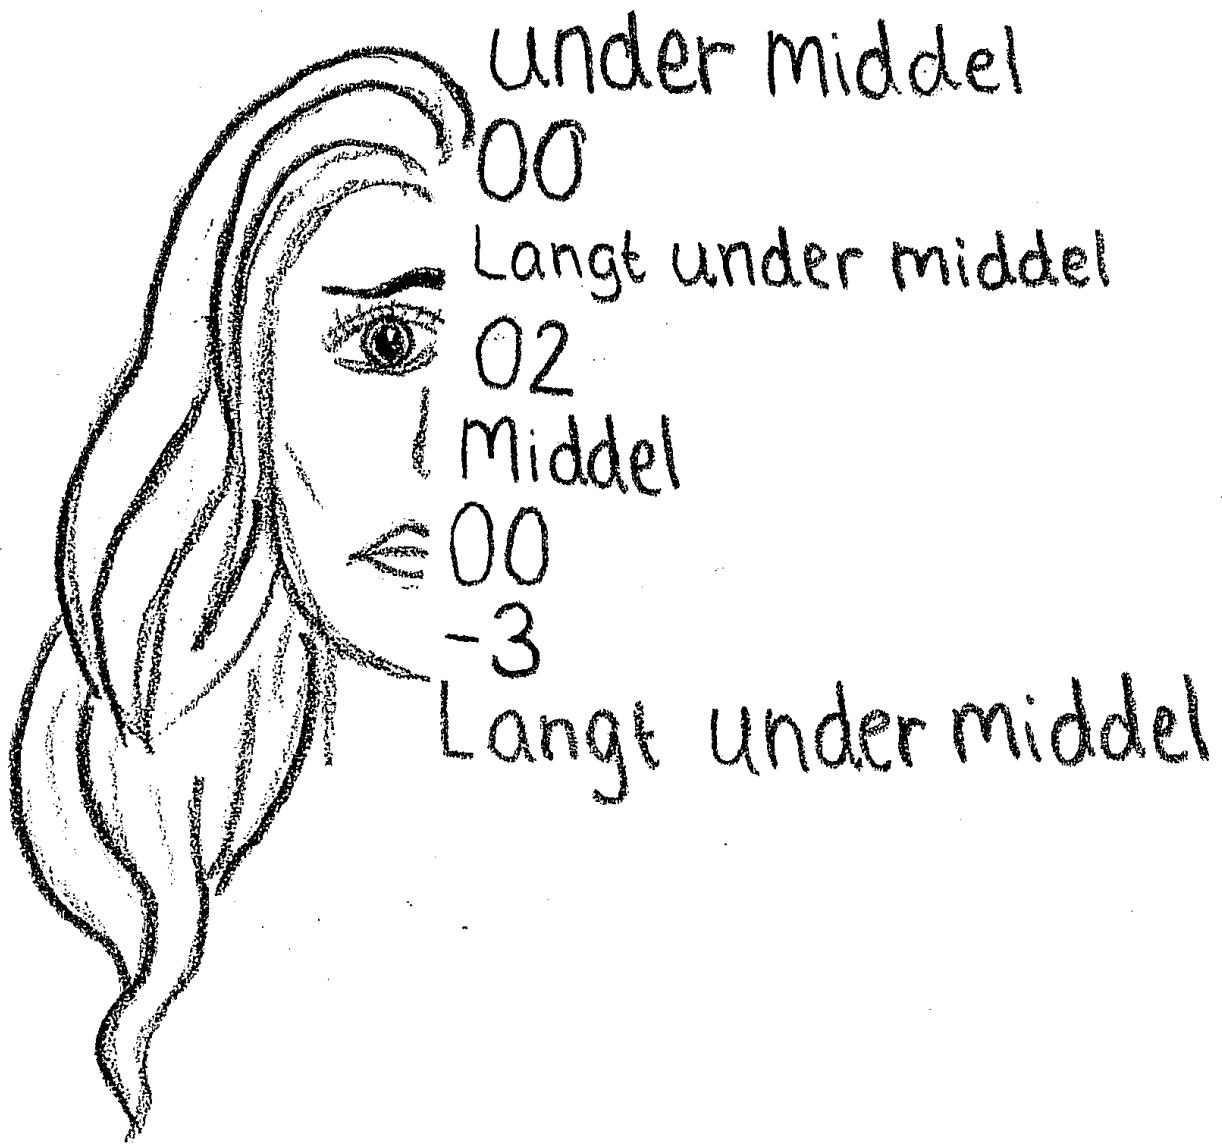 under middel
00
Langt under middel
02
Middel
00
-3
Langt under middel